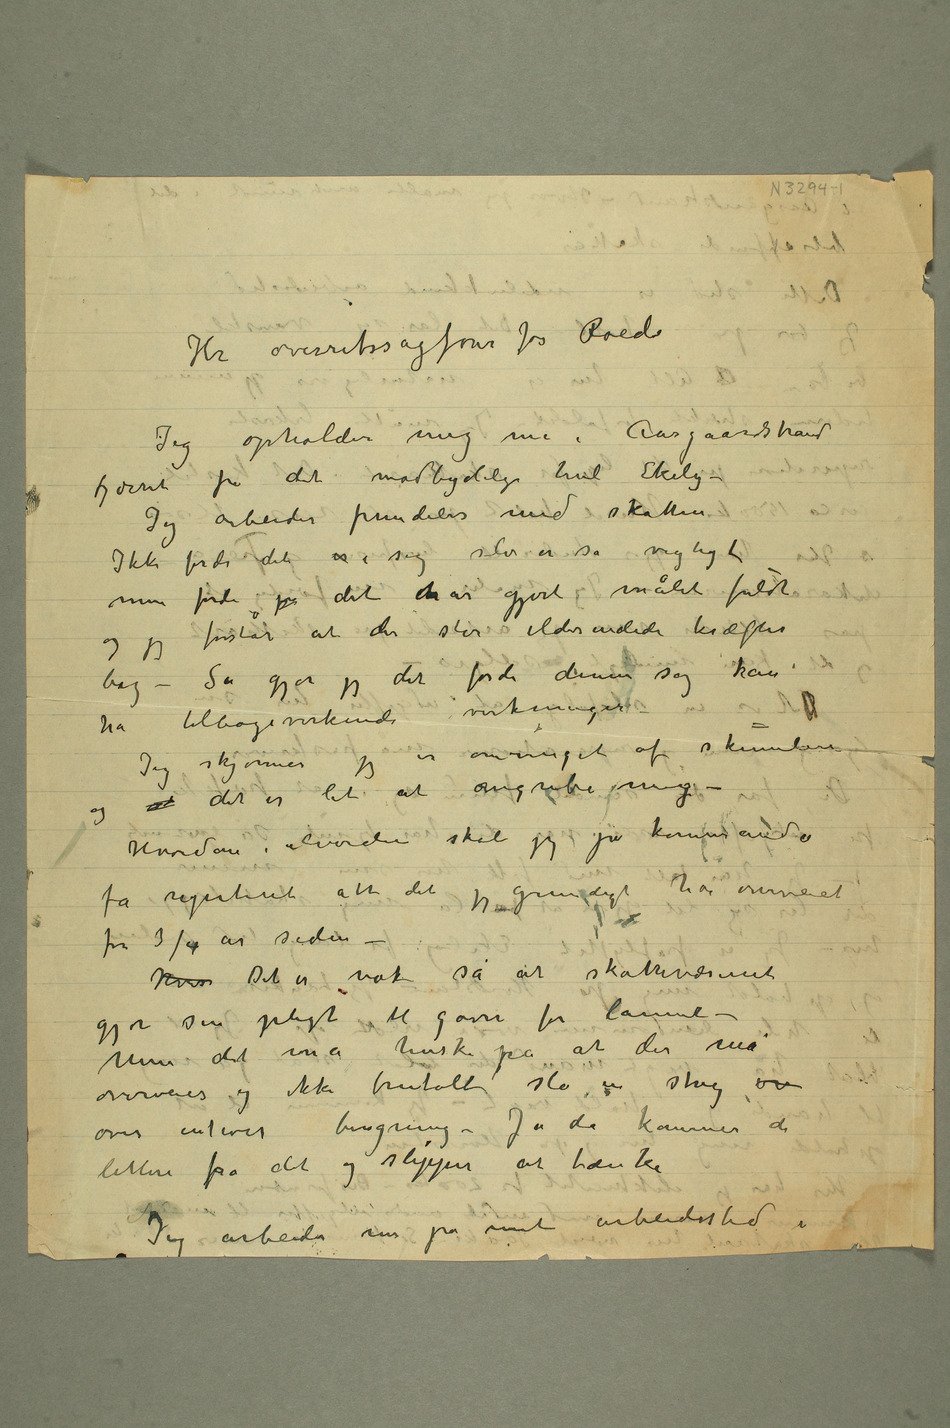 N3294-1
Hr overretssagfører Jos Roede
Jeg opholder mig nu i Aasgaardstrand
fjærnt fra det modbydelige hul Ekely –
Jeg arbeider fremdeles med skatten
Ikke fordi det er i sig selv er så vigtigt
men fordi det har gjort målet fuldt
og jeg forstår at der står ildesindede kræfter
bag – Så gjør jeg det fordi denne sag kan
ha tilbagevirkende virkninger –
Jeg skjønner jeg er omringet af
og at det er let at angribe mig –
Hvordan i alverden skal jeg på kommando
få repeteret alt det jeg grundigt har overveiet
for 3/4 år siden –
Hvis Det er nok så at skattevæsenet
gjør sin pligt til gavn for landet –
Men det må huske på at der må
overveies og ikke brutalt slå en streg ov
over enhver beregning – Ja da kommer de
lettere fra det og slipper at tænke
Jeg arbeider nu på mit arbeidssted i